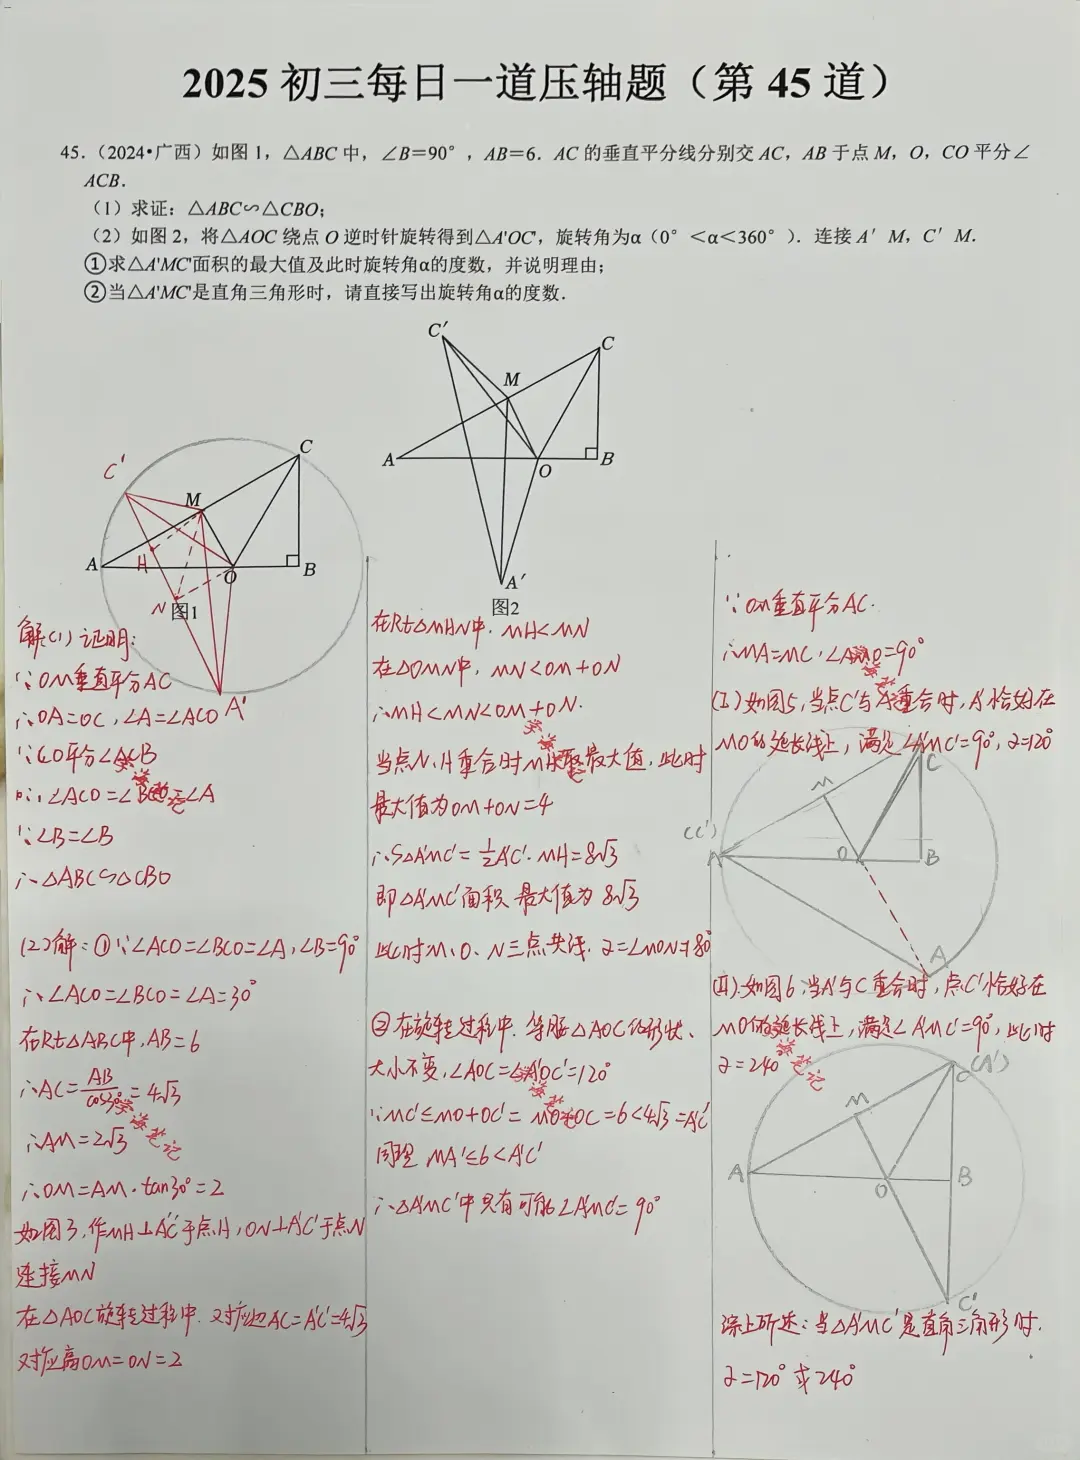 2025 初三每日一道压轴题（第 45 道）
45．（2024•广西）如图 1，△ABC 中，∠B＝90°，AB＝6．AC 的垂直平分线分别交 AC，AB 于点 M，O，CO 平分∠
ACB．
（1）求证：△ABC∽△CBO；
（2）如图 2，将△AOC 绕点 O 逆时针旋转得到△A'OC'，旋转角为α（0°＜α＜360°）．连接 A′ M，C′ M．
①求△A'MC'面积的最大值及此时旋转角α的度数，并说明理由；
②当△A'MC'是直角三角形时，请直接写出旋转角α的度数．
C' M C A O B A'
图2
C' C M A H O B N A'
图1
解(1) 证明:
∵OM垂直平分AC
∴OA=OC,∠A=∠ACO
∵CO平分∠ACB
∴∠ACO=∠BCO=∠A
∵∠B=∠B
∴△ABC∽△CBO
(2)解:①∵∠ACO=∠BCO=∠A,∠B=90°
∴∠ACO=∠BCO=∠A=30°
在Rt△ABC中,AB=6
∴AC=AB/cos30°=4√3
∴AM=2√3
∴OM=AM·tan30°=2
如图3,作MH⊥A'C'于点H,ON⊥A'C'于点N
连接MN
在△AOC旋转过程中.对应边AC=A'C'=4√3
对应高OM=ON=2
在Rt△MHN中.MH<MN
在△OMN中,MN<OM+ON
∴MH<MN<OM+ON.
当点N、H重合时MH取最大值,此时
最大值为OM+ON=4
∴S△A'MC'=½A'C'·MH=8√3
即△A'MC'面积最大值为8√3
此时M、O、N三点共线.α=∠MON=180°
②在旋转过程中.等腰△AOC的形状、
大小不变,∠AOC=∠A'OC'=120°
∵MC'≤MO+OC'=MO+OC=6<4√3=A'C'
同理 MA'≤6<A'C'
∴△A'MC'中只有可能∠A'MC'=90°
∵OM垂直平分AC.
∴MA=MC,∠AMO=90°
(Ⅰ)如图5,当点C'与A重合时,A'恰好在
MO的延长线上,满足∠A'MC'=90°,α=120°
C M (C') A O B A
(Ⅱ).如图6,当A'与C重合时,点C'恰好在
MO的延长线上,满足∠A'MC'=90°,此时
α=240°
C(A') M A O B C'
综上所述:当△A'MC'是直角三角形时.
α=120°或240°
学海笔记
学海笔记
学海笔记
学海笔记
学海笔记
学海笔记